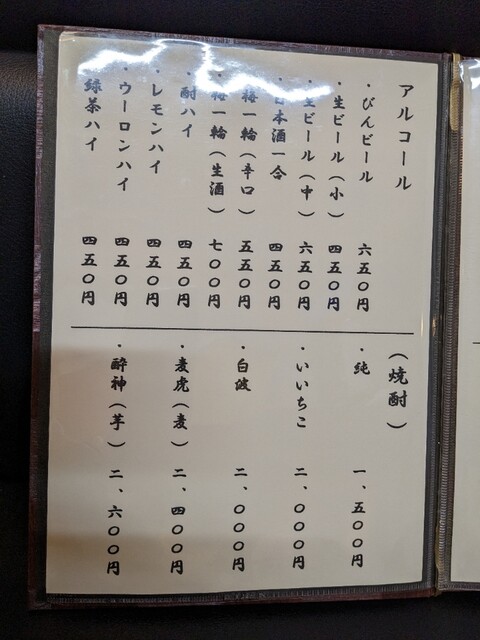 アルコール
・びんビール 六五〇円
・生ビール(小) 四五〇円
・生ビール(中) 六五〇円
・日本酒一合 四五〇円
・梅一輪(辛口) 五五〇円
・梅一輪(生酒) 七〇〇円
・酎ハイ 四五〇円
・レモンハイ 四五〇円
・ウーロンハイ 四五〇円
・緑茶ハイ 四五〇円
(焼酎)
・純 一、五〇〇円
・いいちこ 二、〇〇〇円
・白波 二、〇〇〇円
・麦虎(麦) 二、四〇〇円
・酔神(芋) 二、六〇〇円